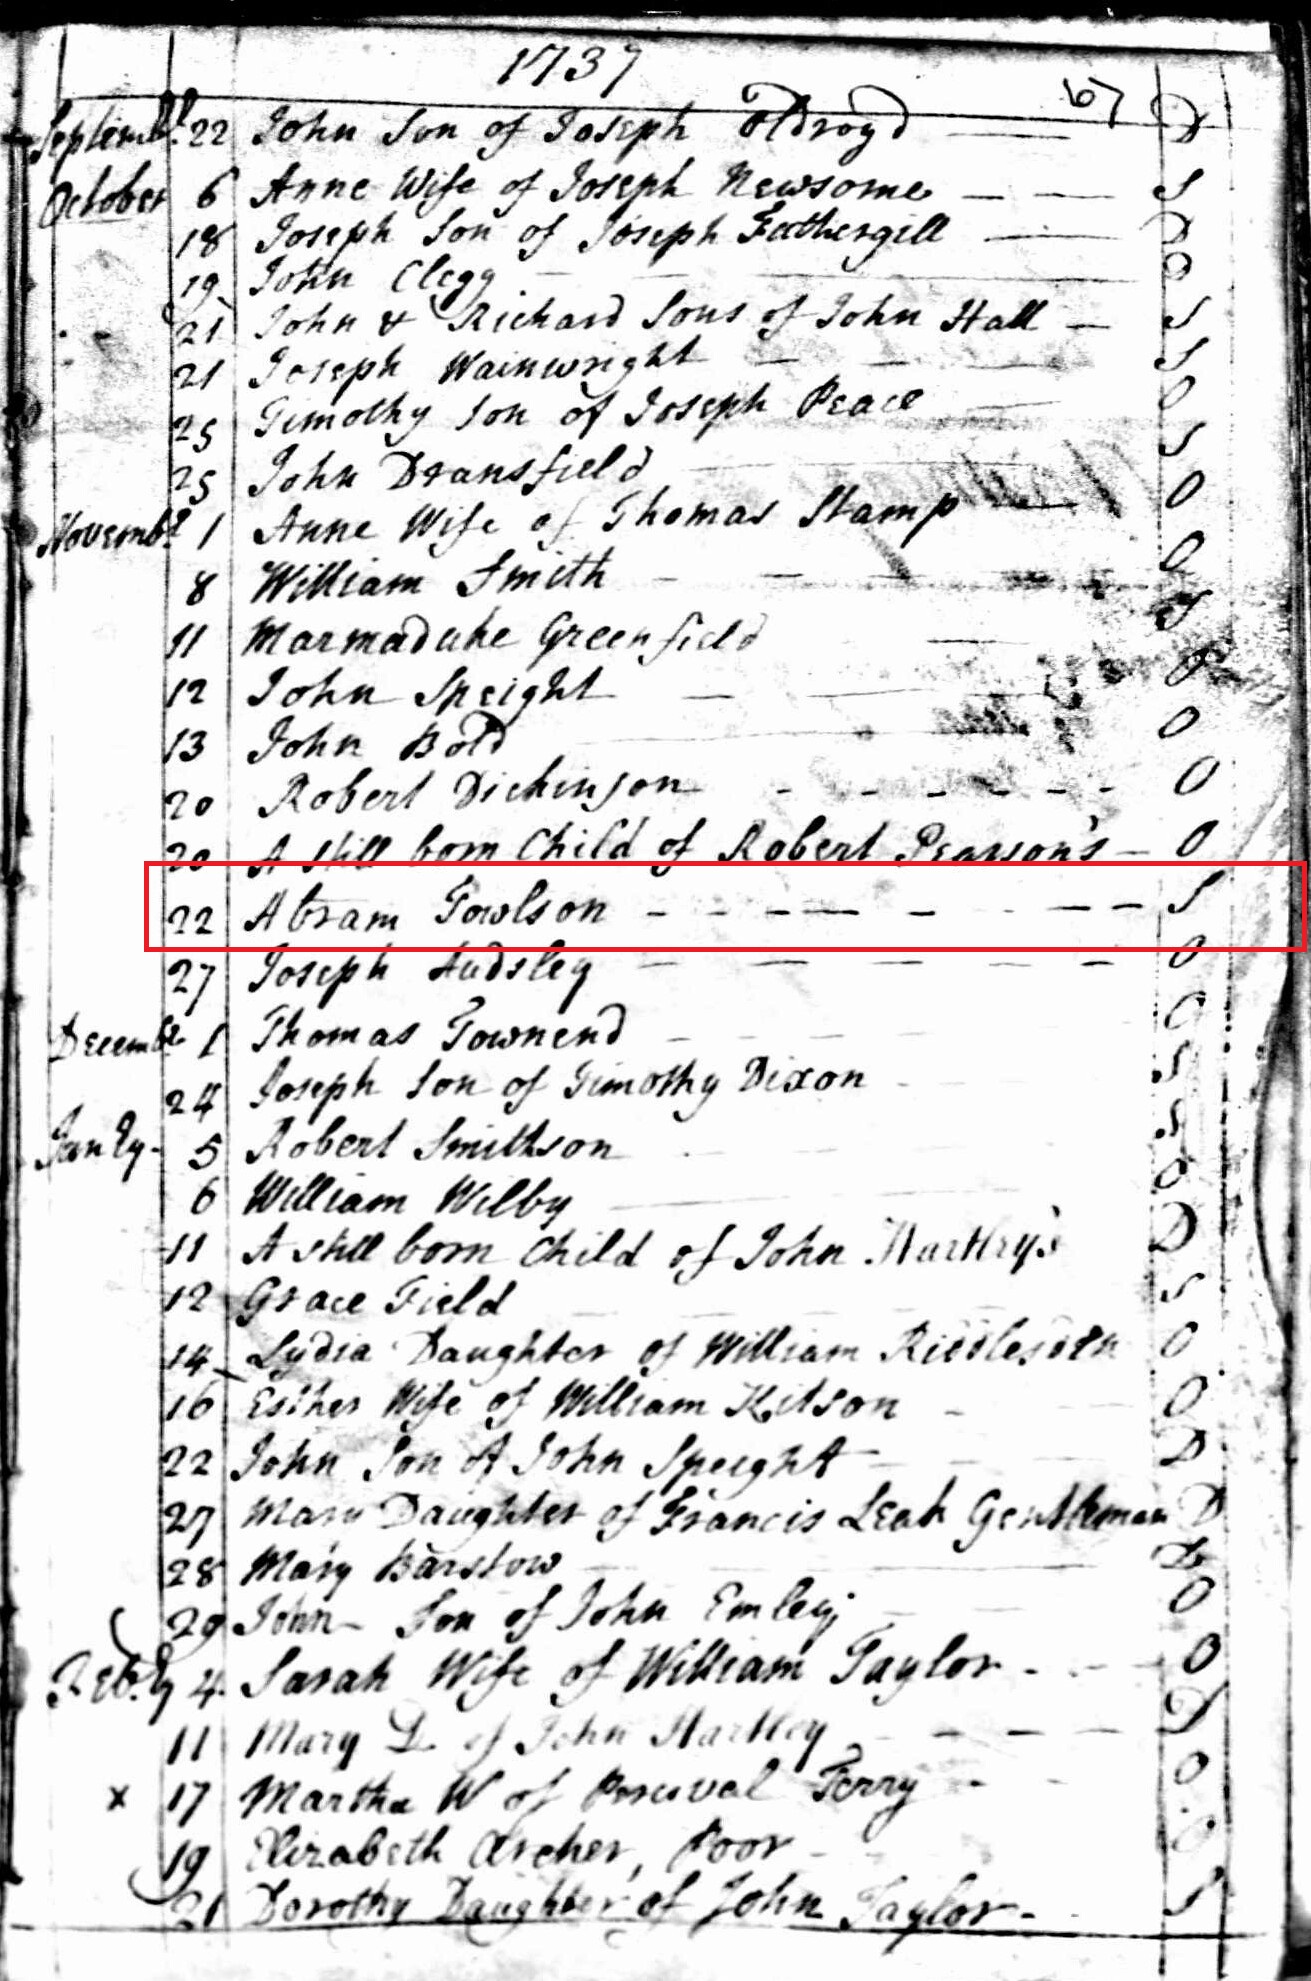 1737
67
Septemb.r 22 John Son of Joseph Oldroyd D
October 6 Anne Wife of Joseph Newsome S
18 Joseph Son of Joseph Fothergill D
19 John Clegg O
21 John & Richard Sons of John Hall S
21 Joseph Wainwright S
25 Timothy Son of Joseph Peace O
25 John Dransfield S
Novemb.r 1 Anne Wife of Thomas Stamp O
8 William Smith O
11 Marmaduke Greenfield S
12 John Speight O
13 John Bold O
20 Robert Dickinson O
20 A still born Child of Robert Pearson's O
22 Abram Towlson S
27 Joseph Audsley O
Decemb.r 1 Thomas Townend O
24 Joseph Son of Timothy Dixon S
Janry 5 Robert Smithson S
6 William Wilby O
11 A still born Child of John Hartley's D
12 Grace Field S
14 Lydia Daughter of William Riddlesden O
16 Esther Wife of William Kitson O
22 John Son of John Speight D
27 Mary Daughter of Francis Leah Gentleman D
28 Mary Barstow D
29 John Son of John Emley O
Feb.ry 4 Sarah Wife of William Taylor O
11 Mary D of John Hartley D
x 17 Martha W of Percival Terry O
19 Elizabeth Archer, Poor O
21 Dorothy Daughter of John Taylor S